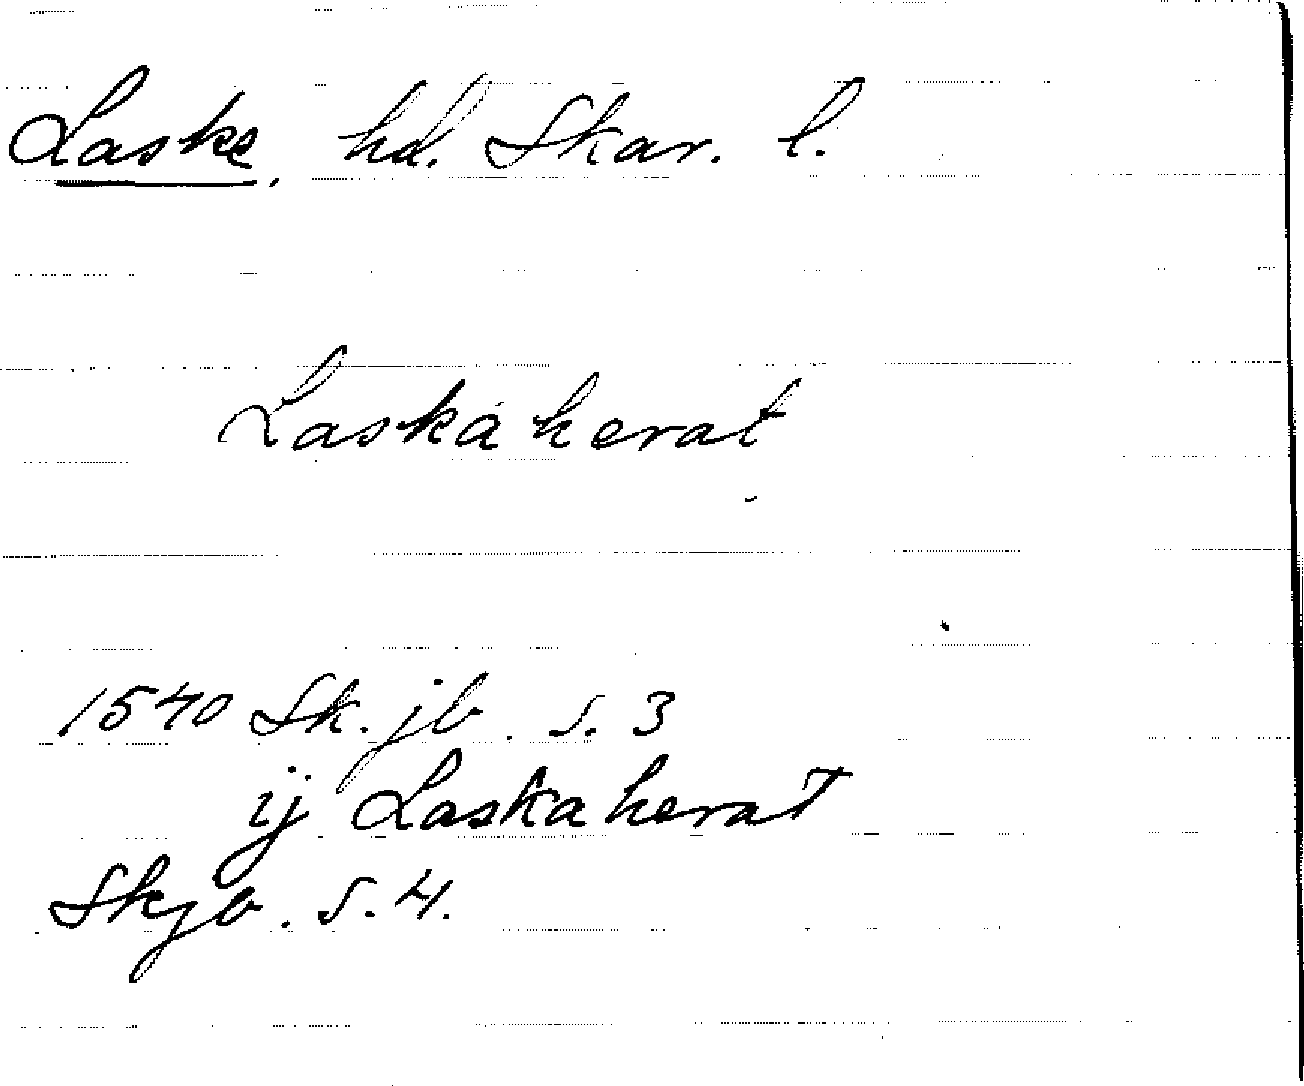 Laske, hd. Skar. l.
Laskaherat
1540 Sk. jb. s. 3
ij Laskaherat
Skjb. s. 4.